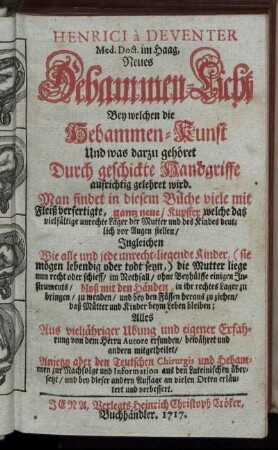 HENRICI à DEVENTER
Med. Doct. im Haag,
Neues
Hebammen-Licht
Bey welchen die
Hebammen-Kunst
Und was darzu gehöret
Durch geschickte Handgriffe
aufrichtig gelehret wird.
Man findet in diesem Buche viele mit
Fleiß verfertigte, gantz neue/ Kupffer welche das
vielfältige unrechte Läger der Mutter und des Kindes deut-
lich vor Augen stellen/
Ingleichen
Wie alle und jede unrecht-liegende Kinder, (sie
mögen lebendig oder todt seyn,) die Mutter liege
nun recht oder schieff/ im Nothfall/ ohne Beyhülffe einigen In-
struments/ Bloß mit den Händen, in ihr rechtes Lager zu
bringen/ zu wenden/ und bey den Füssen heraus zu ziehen/
daß Mütter und Kinder beym Leben bleiben;
Alles
Aus vieljähriger Ubung und eigener Erfah-
rung von dem Herrn Autore erfunden/ bewährt und
andern mitgetheilet/
Anietzo aber den Teutschen Chirurgis und Hebam-
men zur Nachfolge und Information aus den Lateinischen über-
setzt/ und bey dieser andern Auflage an vielen Orten erläu-
tert und verbessert.
JENA, Verlegts Heinrich Christoph Cröker,
Buchhändler, 1717.